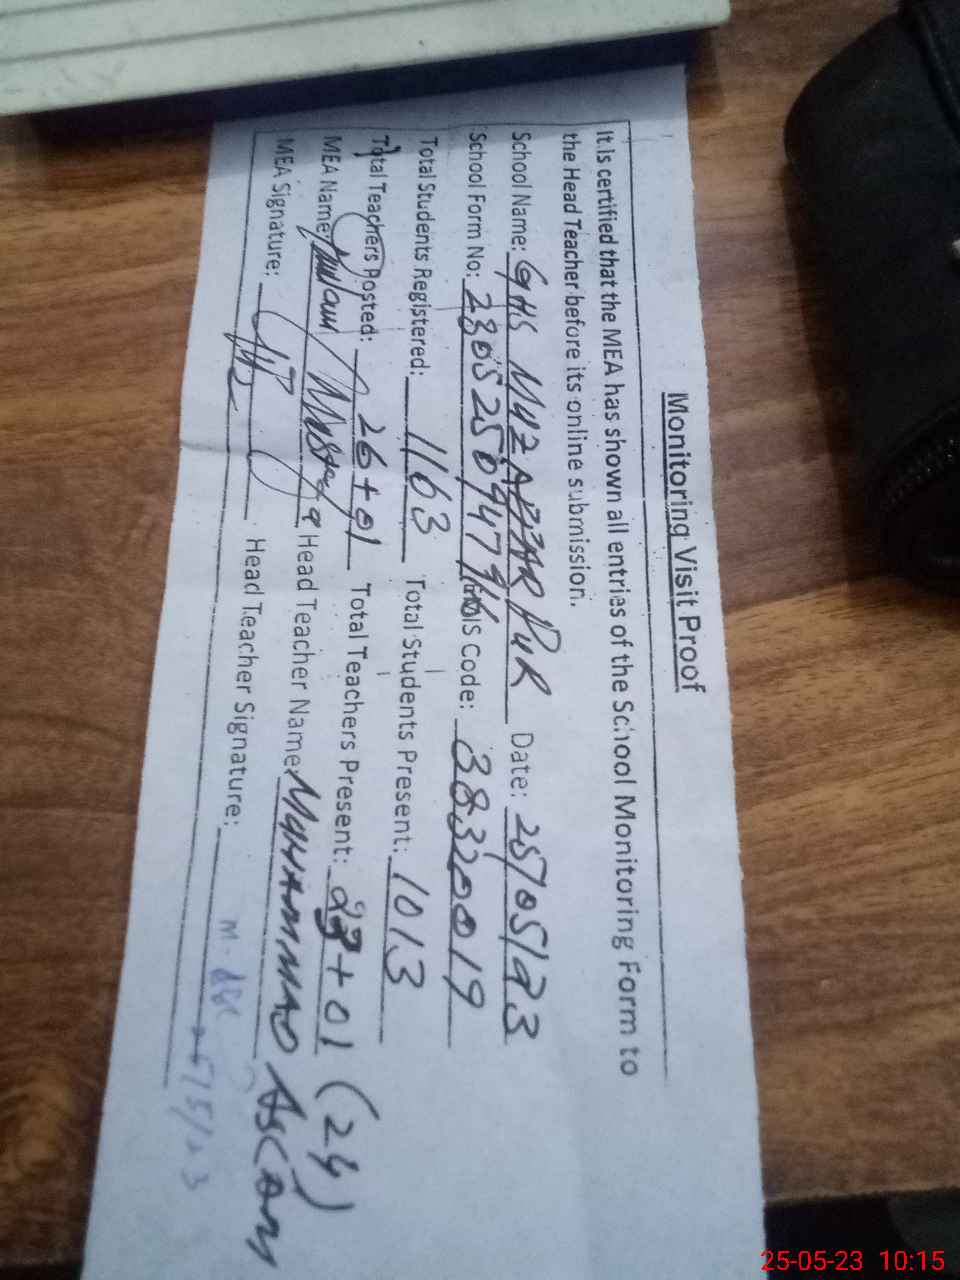 Monitoring Visit Proof
It is certified that the MEA has shown all entries of the School Monitoring Form to
the Head Teacher before its online submission.
School Name: GHS MUZAFFAR PUR Date: 25/05/23
School Form No: Code: 38320019
Total Students Registered: 1163 Total Students Present: 1013
Total Teachers Posted: 26+01 Total Teachers Present: 23+01 (24)
MEA Name: Ghulam Mustafa Head Teacher Name: MUHAMMAD
MEA Signature: Head Teacher Signature:
25-05-23 10:15